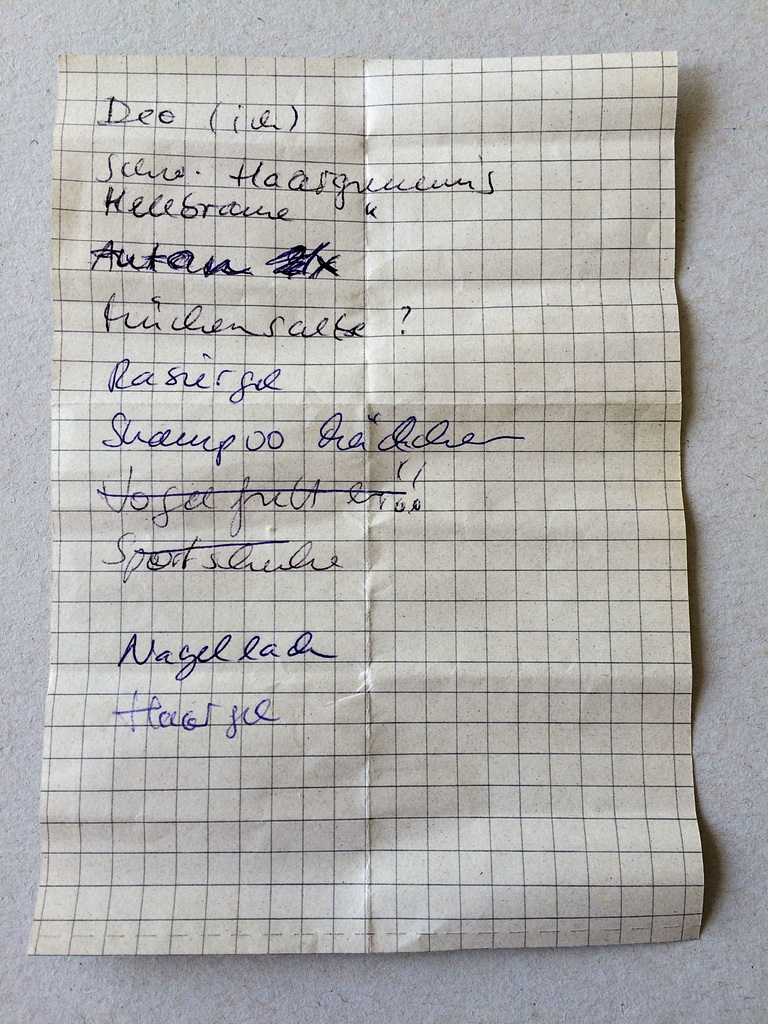 Deo (ich)
Schw. Haargummis
Hellbraune "
Autan
Küchensalbe ?
Rasiergel
Shampoo Mädchen
Vogelfutter!!
Sportschuhe
Nagellack
Haargel